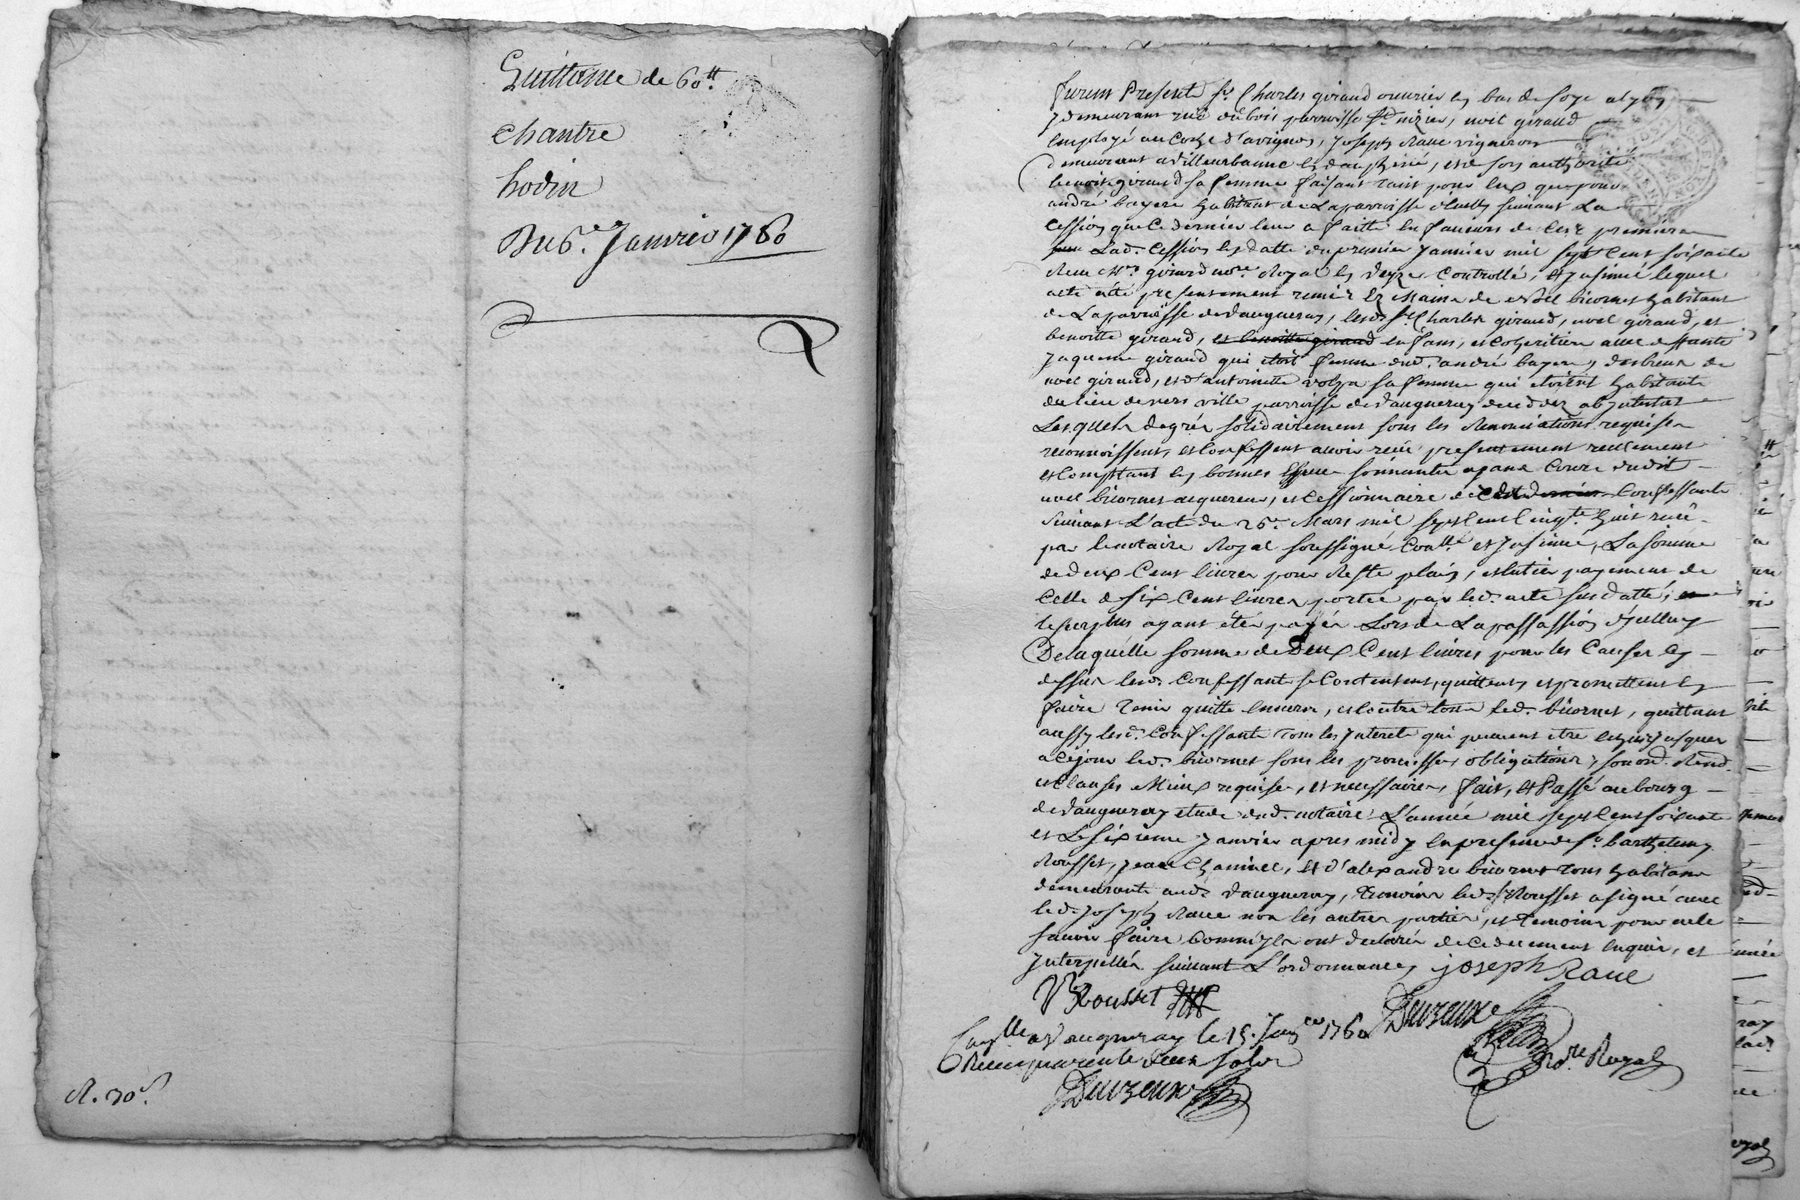 Quittance de 60ᵗᵗ.
chantre
hodin
Du 6.ᵉ Janvier 1760
R. 30ˢ.
furent Presents sʳ. Charles giraud ouvrier en bas de soye a lyon
y demeurant rue du bois parroisse Sᵗ nizier, noel giraud
employé au Coche d'avignon, joseph Raue vigneron
demeurant a villeurbanne en dauphiné, et de son authorité
benoite giraud sa femme faisant tant pour eux que pour
andré bayere habitant de la parroisse suivant La
Cession que Ce dernier leur a faitte en faveurs de ces premiers
Lad. Cession en datte du premier janvier mil sept Cent soixante
Reue Mᵉ. girard noʳᵉ. Royal Controllé, et Insinué lequel
acte a été presentement remis ez Mains de noel bicornet habitant
de La parroisse de vaugneray, lesd. sʳ. Charles giraud, noel giraud, et
benoitte giraud, et benoitte giraud enfans, et Coheritiers avec deffunte
jaqueme giraud qui étoit femme dud. andré bayere, desbeux de
noel giraud, et d'antoinette sa femme qui étoient habitants
du lieu de vers ville parroisse de vaugneray
Lesquels de gré solidairement sous les Renonciations requises
reconnoissent, et Confessent avoir reçu presentement reellement
et Comptant en bonnes Especes sonnantes ayant Cours dudit
noel bicornet acquereur, et Cessionnaire de Confessants
suivant L'acte du 26ᵉ. Mars mil sept Cent Cinqᵗᵉ huit reçu
par le notaire Royal soussigné Conᵗˡˡᵉ. et Insinué, La somme
de deux Cent livres pour Reste plain, et entier payement de
Celle de six Cent livres portée par led. acte susdatté,
le surplus ayant été payé Lors de La passassion d'jcelluy
De laquelle somme de Deux Cent livres pour les Causes Cy
dessus lesd. Confessants se Contentent, quittent, et promettent en
faire tenir quitte envers, et Contre tous led. bicornet, quittant
aussy lesd. Confessants tous les Interets qui peuvent etre jusques
a Ce jour led. bicornet sous les promesses, obligations, Rend.
et Clauses Mieux requises, et necessaires, fait, et Passé au bourg
de vaugneray etude dud. notaire L'année mil sept Cent soixante
et Le sixieme janvier apres midy en presence de sʳ. barthelemy
Rousset, jean Chaminet, Et d'alexandre bicornet tous habitans
demeurants aud. vaugneray, temoins led. sʳ. Rousset a signé avec
led. joseph Raue non les autres parties, et temoins pour ne le
savoir faire Comme ils ont declaré de Ce duement enquis, et
jnterpellés suivant L'ordonnance, joseph Raue
Rousset
Duvzeux
noʳᵉ Royal
Conᵗˡˡᵉ a Vaugneray le 15. Janᵉʳ 1760
Reçu quarente deux sols
Duvzeux